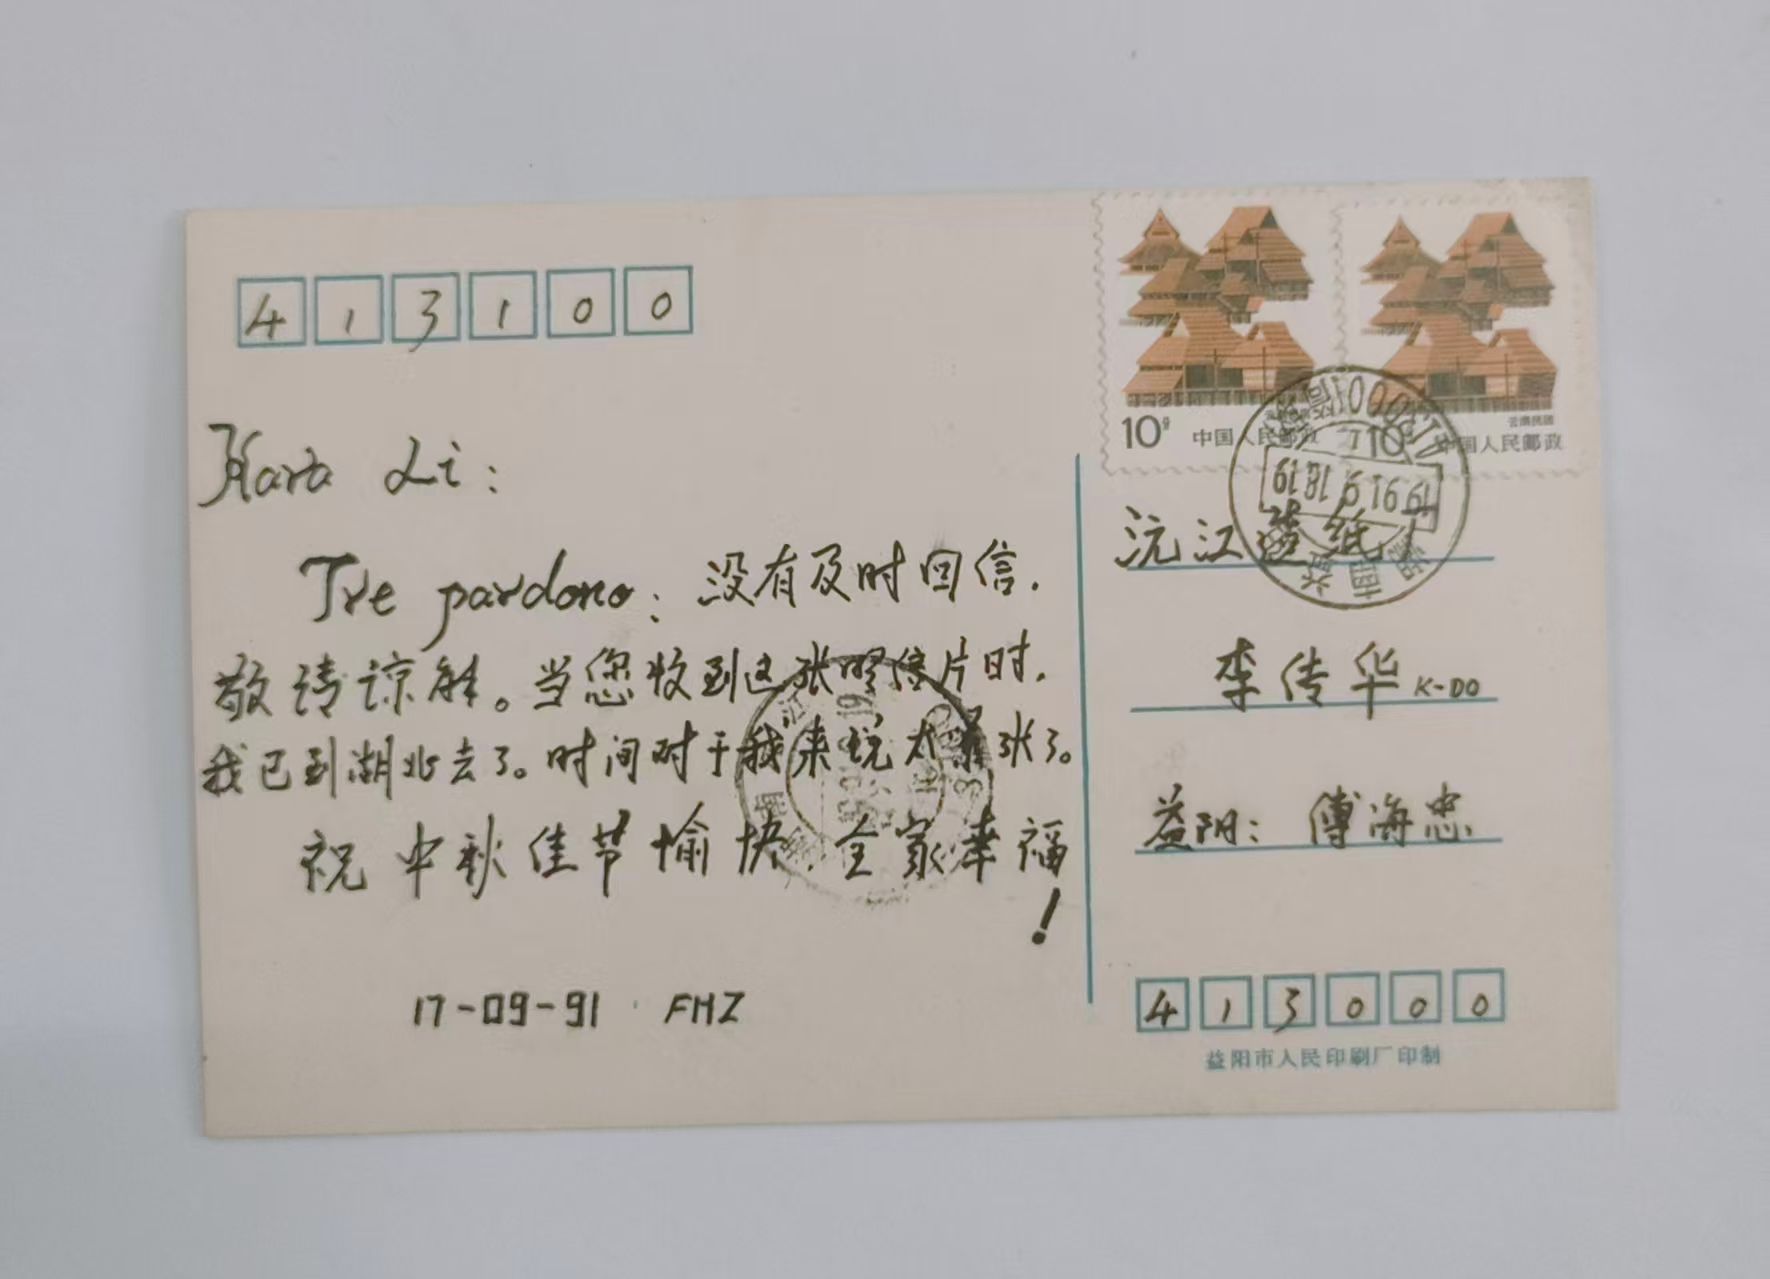 413100
Kara Li:
Tre pardono: 没有及时回信,
敬请谅解。当您收到这张明信片时,
我已到湖北去了。时间对于我来说太紧张了。
祝中秋佳节愉快,全家幸福
!
17-09-91 · FHZ
10分 中国人民邮政
云南民居
10分 中国人民邮政
413000
1991.9.18.19
湖南 益阳
沅江造纸厂
李传华 K-DO
益阳: 傅海忠
413000
益阳市人民印刷厂印制